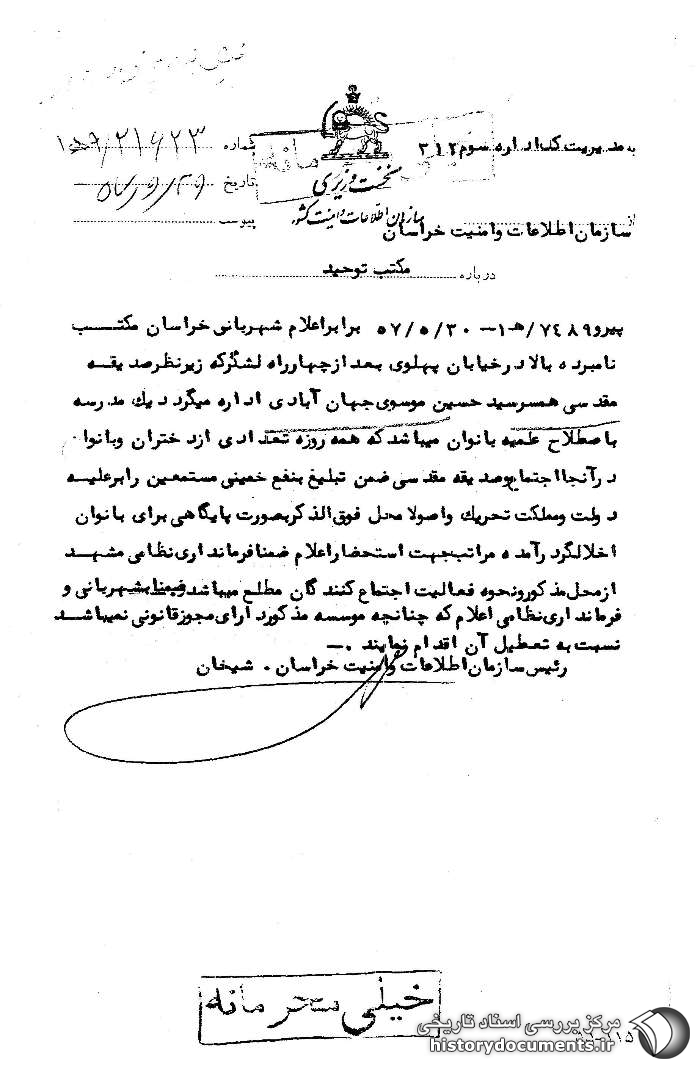 به مدیریت کل اداره سوم ۳۱۲
شماره ۲۱۶۲۳
تاریخ
پیوست
نخست وزیری
سازمان اطلاعات و امنیت کشور
از
سازمان اطلاعات وامنیت خراسان
درباره مکتب توحید
پیرو ۷۴۸۹/هـ۱ – ۵۷/۵/۳۰ برابر اعلام شهربانی خراسان مکتب
نامبرده بالا در خیابان پهلوی بعد از چهارراه لشگر که زیر نظر صدیقه
مقدسی همسر سید حسین موسوی جهان آبادی اداره میگردد یك مدرسه
باصطلاح علمیه بانوان میباشد که همه روزه تعدادی از دختران وبانوان
در آنجا اجتماع وصدیقه مقدسی ضمن تبلیغ بنفع خمینی مستمعین را برعلیه
دولت ومملکت تحریك واصولا محل فوق الذکر بصورت پایگاهی برای بانوان
اخلالگر درآمده مراتب جهت استحضار اعلام ضمنا فرمانداری نظامی مشهد
از محل مذکور ونحوه فعالیت اجتماع کنندگان مطلع میباشد بشهربانی و
فرمانداری نظامی اعلام که چنانچه موسسه مذکور دارای مجوز قانونی نمیباشد
نسبت به تعطیل آن اقدام نمایند .–
رئیس سازمان اطلاعات وامنیت خراسان . شیخان
خیلی محرمانه
مرکز بررسی اسناد تاریخی
historydocuments.ir